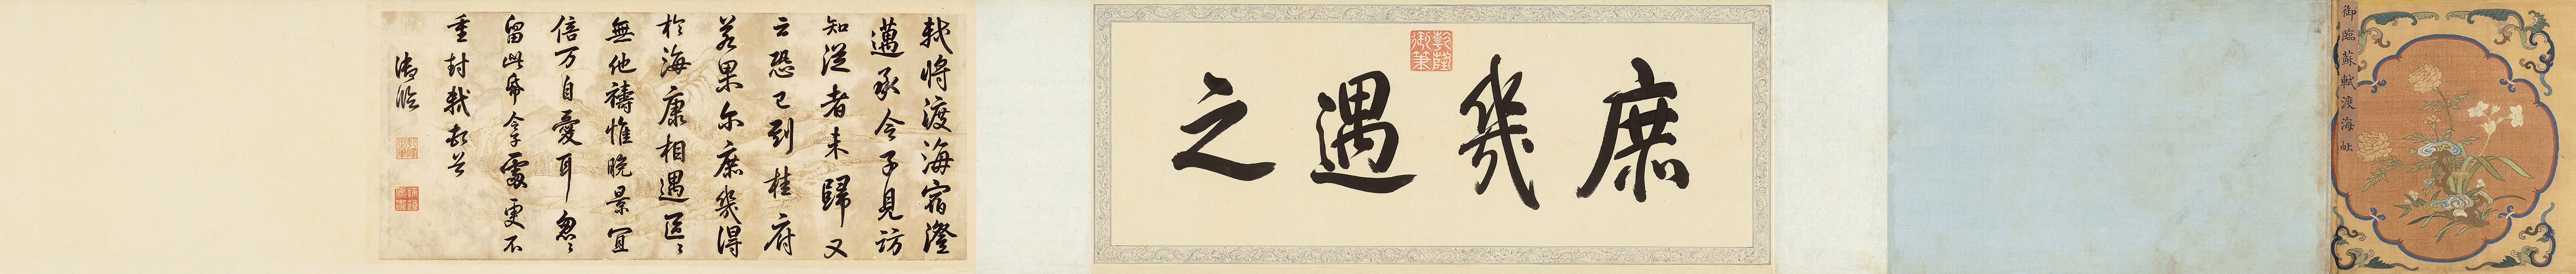 御臨蘇軾渡海帖
乾隆御筆
庶幾遇之
軾將渡海宿澄
邁承令子見訪
知從者未歸又
云恐已到桂府
若果爾庶幾得
於海康相遇區〻
無他禱惟晚景宜
倍万自愛耳忽〻
留此帋令子處更不
重封軾頓首
御臨